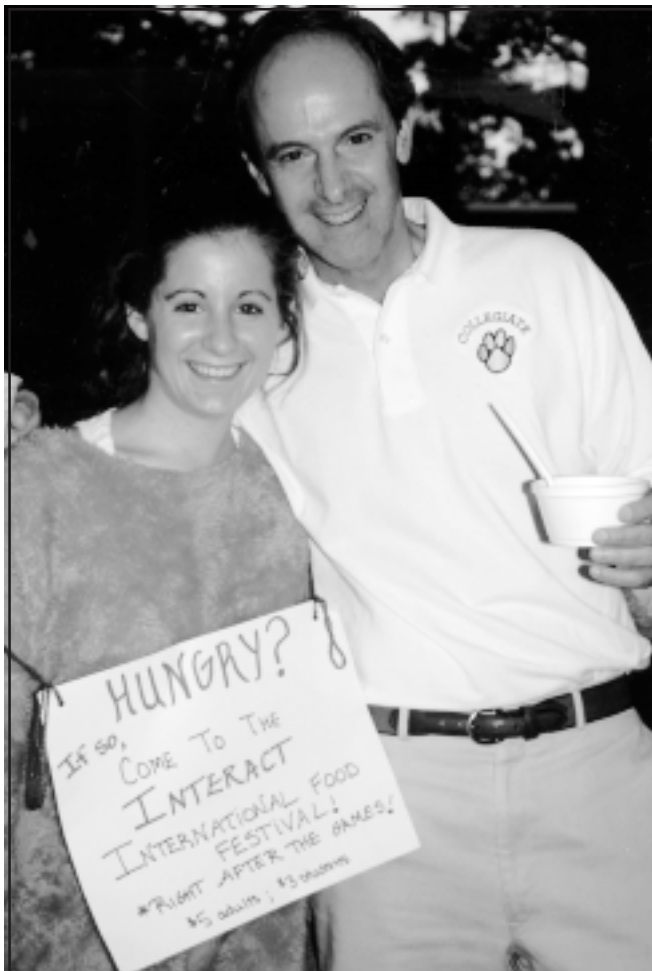 COLLEGIATE
HUNGRY?
If so,
COME TO THE
INTERACT
INTERNATIONAL FOOD
FESTIVAL!
*RIGHT AFTER THE GAMES!
$5 adults; $3 students